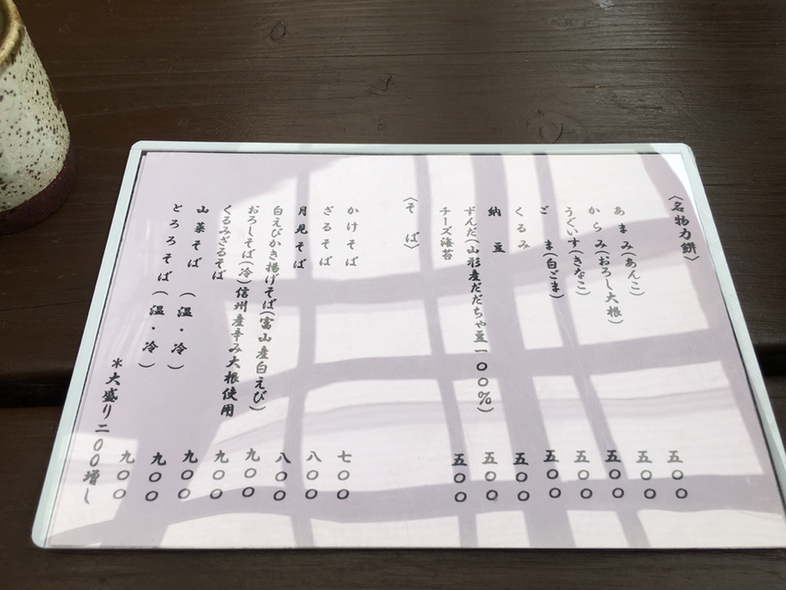 〈名物力餅〉
あまみ(あんこ) 五〇〇
からみ(おろし大根) 五〇〇
うぐいす(きなこ) 五〇〇
ごま(白ごま) 五〇〇
くるみ 五〇〇
納豆 五〇〇
ずんだ(山形産だだちゃ豆一〇〇%) 五〇〇
チーズ海苔 五〇〇
〈そば〉
かけそば 七〇〇
ざるそば 八〇〇
月見そば 八〇〇
白えびかき揚げそば(富山産白えび) 九〇〇
おろしそば(冷)信州産辛み大根使用 九〇〇
くるみざるそば 九〇〇
山菜そば(温・冷) 九〇〇
とろろそば(温・冷) 九〇〇
*大盛り二〇〇増し